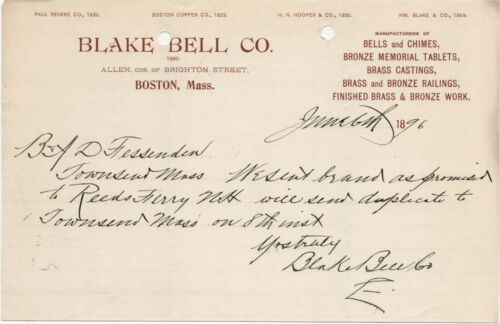 PAUL REVERE CO., 1820. BOSTON COPPER CO., 1823. H. N. HOOPER & CO., 1830. WM. BLAKE & CO., 1869.
BLAKE BELL CO.
1890.
ALLEN, COR. OF BRIGHTON STREET,
BOSTON, Mass.
MANUFACTURERS OF
BELLS and CHIMES,
BRONZE MEMORIAL TABLETS,
BRASS CASTINGS,
BRASS and BRONZE RAILINGS,
FINISHED BRASS & BRONZE WORK.
June 6th 1896
D Fessenden
Townsend Mass We sent brand as promised
to Reeds Ferry NH will send duplicate to
Townsend Mass on 8th inst
Yrs truly
Blake Bell Co